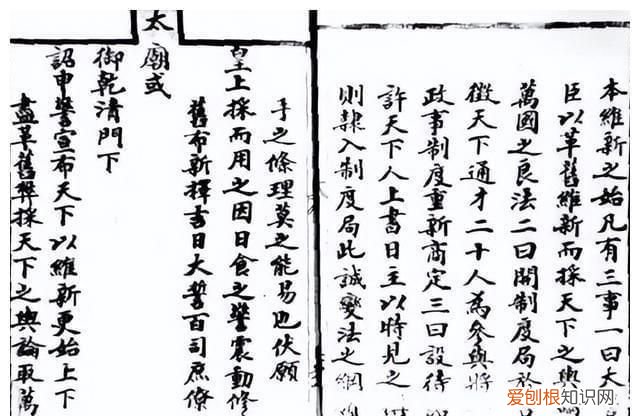 本維新之始凡有三事一曰大
臣以革舊維新而採天下之與
萬國之良法二曰開制度局於
徵天下通才二十人為參與將
政事制度重新商定三曰設待
許天下人上書日主以時見之
則隸入制度局此誠變法之綱
手之條理莫之能易也伏願
皇上採而用之因日食之警震動修
舊布新擇吉日大誓百司庶僚
太廟或
御乾清門下
詔申誓宣布天下以維新更始上下
盡革舊弊採天下之輿論取萬
爱创根知识网